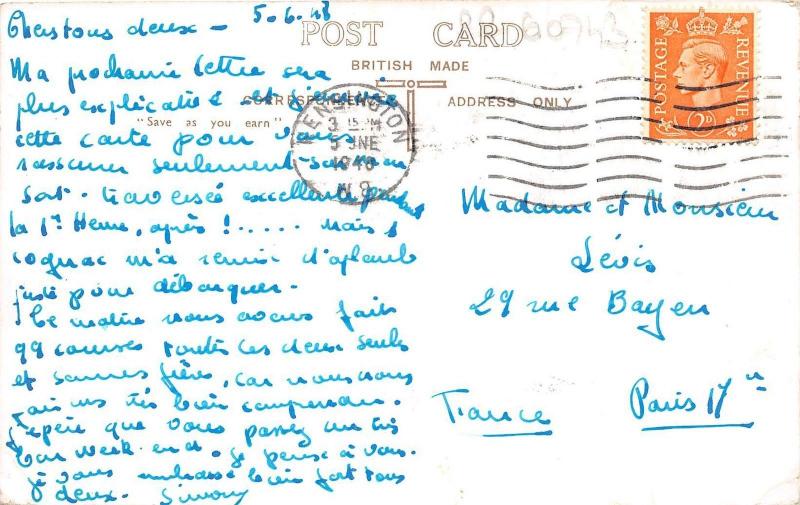 Chers tous deux - 5.6.48
POST CARD
BRITISH MADE
CORRESPONDENCE
ADDRESS ONLY
"Save as you earn"
KENSINGTON
3 15 PM
5 JNE
1948
W.8
POSTAGE
REVENUE
2D
Ma prochaine lettre sera
plus explicative et j'envoie
cette carte pour vous
rassurer seulement sur mon
sort - traversée excellente pendant
la 1re Heure, après !..... Mais 1
cognac m'a remise d'aplomb
juste pour débarquer.
Ce matin nous avons fait
qq courses toutes les deux seules
et sommes fières, car nous nous
faisons très bien comprendre.
J'espère que vous passez un très
bon week-end. Je pense à vous.
je vous embrasse bien fort tous
2 deux. Simony
Madame et Monsieur
Lévis
29 rue Bayen
Paris 17e
France